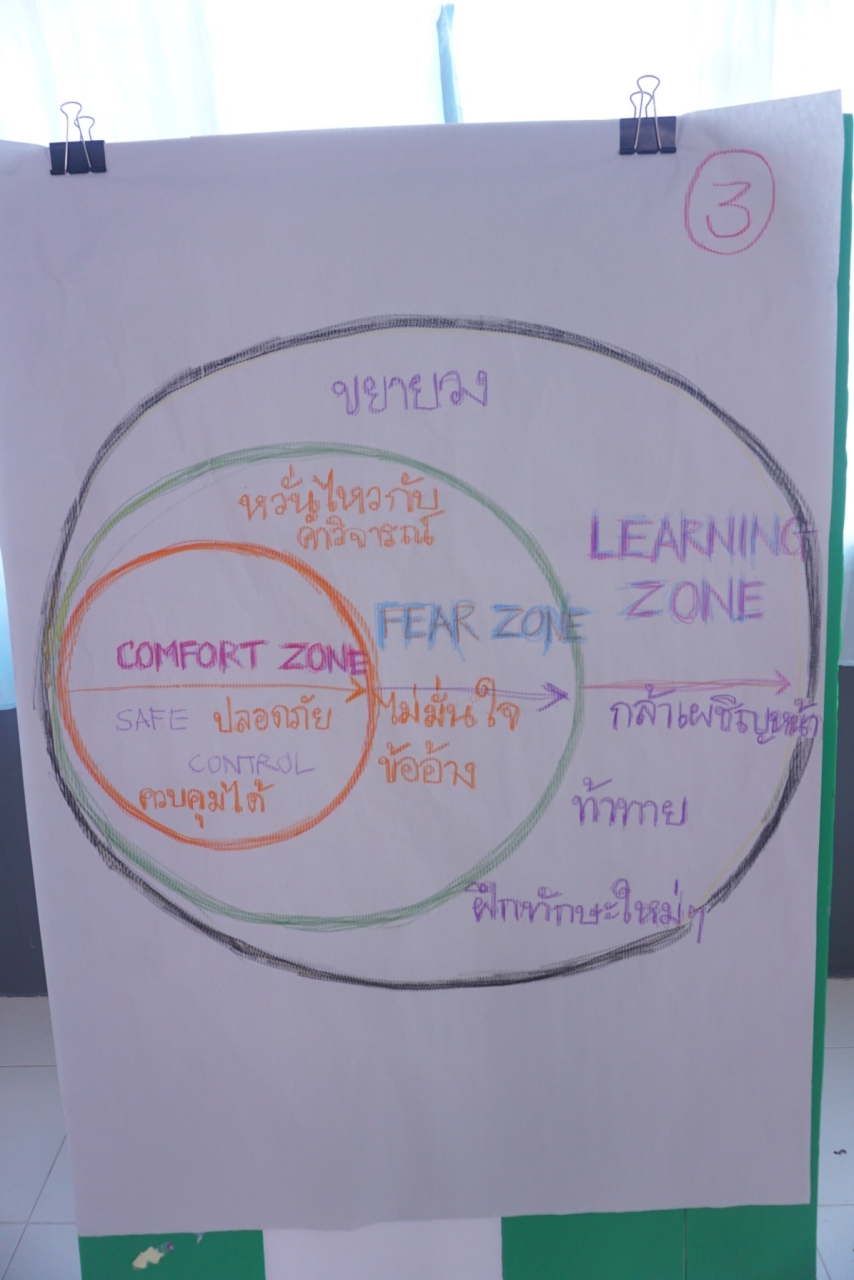 3
ขยายวง
หวั่นไหวกับ
คำวิจารณ์
LEARNING
ZONE
FEAR ZONE
COMFORT ZONE
SAFE ปลอดภัย
CONTROL
ควบคุมได้
ไม่มั่นใจ
ข้ออ้าง
กล้าเผชิญหน้า
ท้าทาย
ฝึกทักษะใหม่ๆ